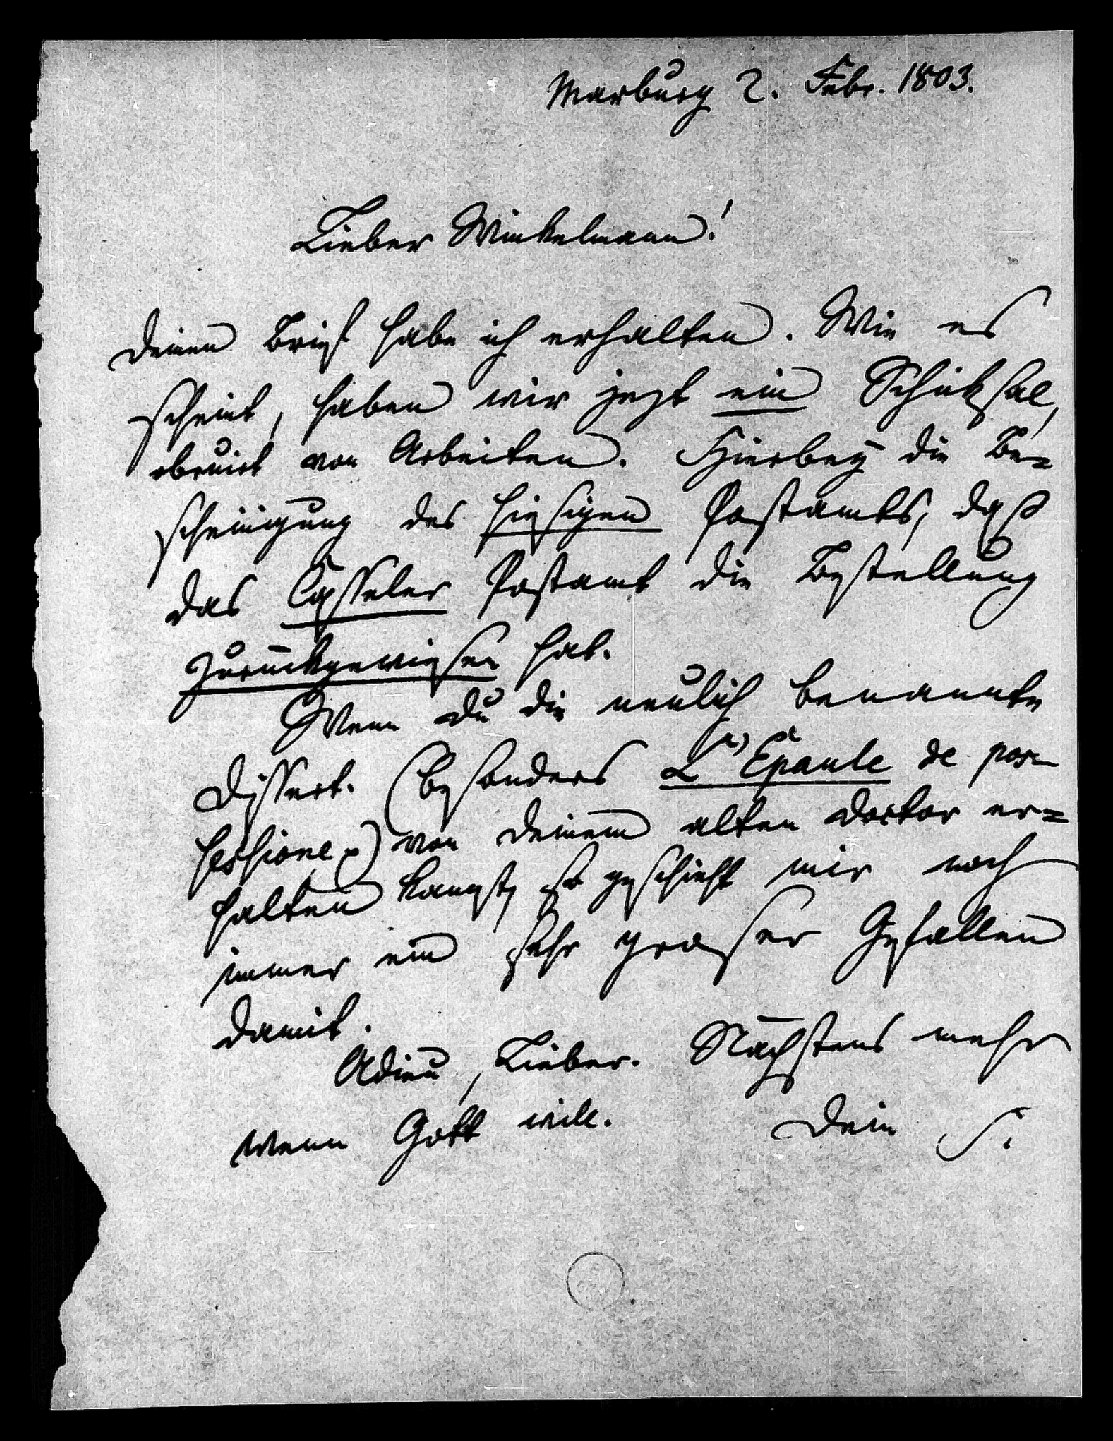 Marburg 2. Febr. 1803.
Lieber Winkelmann!
Deinen Brief habe ich erhalten. Wie es
scheint, haben wir jezt ein Schiksal,
obruirt von Arbeiten. Hierbey die Be=
scheinigung des hiesigen Postamts, daß
das Casseler Postamt die Bestellung
zurückgewiesen hat.
Wenn du die neulich benannte
Dissert. (besonders L'Epaule de pos-
sessione) von deinem alten Doctor er=
halten kannst, so geschieht mir noch
immer ein sehr groser Gefallen
damit.
Adieu, Lieber. Nächstens mehr
wenn Gott will. Dein S.